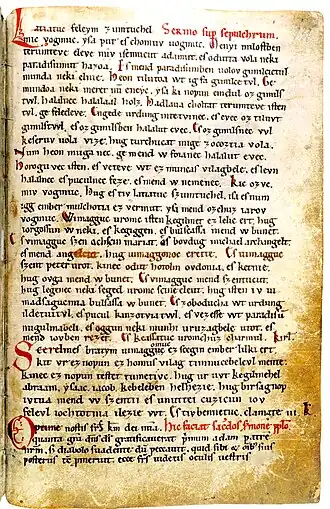 Latiatuc feleym zumtuchel Sermo sup sepulchrum.
mic vogmuc. yſa pur eſ chomuv uogmuc. Menyi miloſtben
terumteve eleve miv iſemucut adamut. eſ odutta vola neki
paradiſumut hazoa. Eſ mend paradiſumben uolov gimilcictul
munda neki elnie. Heon tilutoa wt ig fa gimilce tvl. Ge
mundoa neki meret num eneyc. yſa ki nopun emdul oz gimilſ
twl. halalnec halalaal holz. Hadlaua choltat terumteve iſten
tvl. ge feledeve. Engede urdung intetvinec. eſ evec oz tiluvt
gimilſtwl. eſ oz gimilſben halalut evec. Eſ oz gimilſnec vvl
keſeruv uola vize. hug turchucat mige zocoztia vola.
Num heon muga nec. ge mend w foianec halalut evec.
Horoguvec iſten. eſ veteve wt ez muncaſ vilagbele. eſ levn
halalnec eſ puculnec feze. eſ mend w nemenec. Kic ozvc.
miv vogmuc. hug eſ tiv latiatuv szumtuchel. iſa eſ num
igg ember mulchotia ez vermut. yſa mend ozchuz iarov
vogmuc. Wimagguc uromv iſten kegilmet ez lelic ert. hug
iorgoſſun w neki. eſ kegiggen. eſ bulſaſſa mend w bunet.
Eſ vimagguc szen achſcin mariat. eſ bovdug michael archangelt.
eſ mend angelcut. hug uimaggonoc erette. Eſ uimagguc
szent peter urot. kinec odut hotolm ovdonia. eſ ketnie.
hug ovga mend w bunet. Eſ vimagguc mend szentucut.
hug legenec neki seged uromc scine eleut. hug iſten iv ui
madſagucmia bulſaſſa w bunet. Eſ zoboducha wt urdung
ildetuitvl. eſ pucul kinzotviatwl. eſ vezeſſe wt paradiſu
nugulmabeli. eſ oggun neki munhi uruzagbele utot. eſ
mend iovben rezet. Eſ keaſſatuc uromchuz charmul. Kirl.
Scerelmeſ bratym uimagguc omuc ez scegin ember lilki ert.
kit vr ez nopun ez homuſ vilag timnucebelevl mente.
kinec ez nopun teſtet tumetivc. hug ur uvt kegilmehel
abraam. yſaac. iacob. kebeleben helhezie. hug birſagnop
ivtva mend w szentii eſ unuttei cuzicun iov
felevl iochtotnia ilezie wt. Eſ tivbennetuc. clamate iii. k